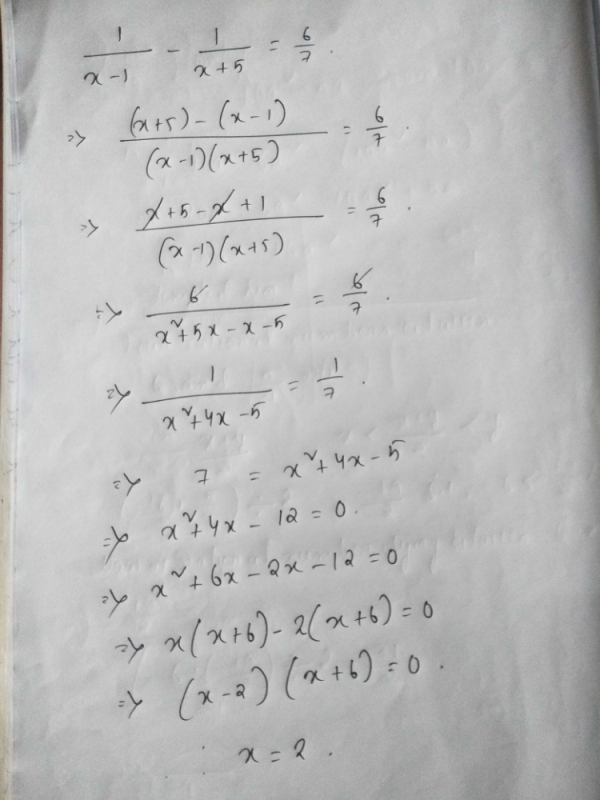 1/(x-1) - 1/(x+5) = 6/7.
⇒ ((x+5)-(x-1))/((x-1)(x+5)) = 6/7.
⇒ (x+5-x+1)/((x-1)(x+5)) = 6/7.
⇒ 6/(x²+5x-x-5) = 6/7.
⇒ 1/(x²+4x-5) = 1/7.
⇒ 7 = x²+4x-5
⇒ x²+4x-12=0.
⇒ x²+6x-2x-12=0
⇒ x(x+6)-2(x+6)=0
⇒ (x-2)(x+6)=0.
∴ x=2.